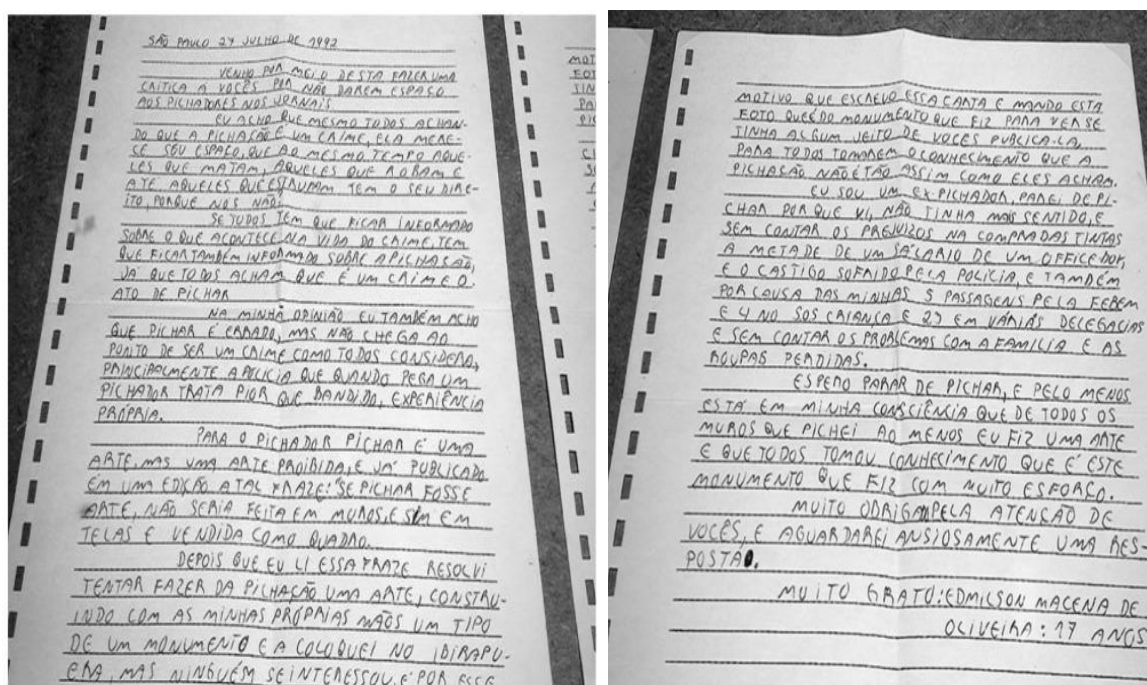 SÃO PAULO 27 JULHO DE 1992
VENHO POR MEIO DESTA FAZER UMA
CRITICA A VOCÊS POR NÃO DAREM ESPAÇO
AOS PICHADORES NOS JORNAIS.
EU ACHO QUE MESMO TODOS ACHAN-
DO QUE A PICHAÇÃO É UM CRIME, ELA MERE-
CE SEU ESPAÇO, QUE AO MESMO TEMPO AQUE-
LES QUE MATAM, AQUELES QUE ROBAM E
ATE AQUELES QUE ESTRUPAM TEM O SEU DIRE-
ITO, PORQUE NOS NÃO?
SE TUDOS TEM QUE FICAR INFORMADO
SOBRE O QUE ACONTECE NA VIDA DO CRIME, TEM
QUE FICAR TAMBÉM INFORMADO SOBRE A PICHAÇÃO,
JÁ QUE TODOS ACHAM QUE É UM CRIME O
ATO DE PICHAR
NA MINHA OPINIÃO EU TAMBÉM ACHO
QUE PICHAR É ERRADO, MAS NÃO CHEGA AO
PONTO DE SER UM CRIME COMO TODOS CONSIDERA,
PRINCIPALMENTE A POLICIA QUE QUANDO PEGA UM
PICHADOR TRATA PIOR QUE BANDIDO, EXPERIÊNCIA
PRÓPRIA.
PARA O PICHADOR PICHAR É UMA
ARTE, MAS UMA ARTE PROIBIDA, E JÁ PUBLICADO
EM UMA EDIÇÃO A TAL FRAZE: "SE PICHAR FOSSE
ARTE, NÃO SERIA FEITA EM MUROS, E SIM EM
TELAS E VENDIDA COMO QUADRO.
DEPOIS QUE EU LI ESSA FRAZE RESOLVI
TENTAR FAZER DA PICHAÇÃO UMA ARTE, CONSTRU-
INDO COM AS MINHAS PRÓPRIAS MÃOS UM TIPO
DE UM MONUMENTO E A COLOQUEI NO IBIRAPU-
ERA, MAS NINGUÉM SE INTERESSOU, E POR ESSE
MOTIVO QUE ESCREVO ESSA CARTA E MANDO ESTA
FOTO QUE É DO MONUMENTO QUE FIZ PARA VER SE
TINHA ALGUM JEITO DE VOCES PUBLICA-LA,
PARA TODOS TOMAREM O CONHECIMENTO QUE A
PICHAÇÃO NÃO É TÃO ASSIM COMO ELES ACHAM.
EU SOU UM EX-PICHADOR, PAREI DE PI-
CHAR PORQUE VI, NÃO TINHA MAIS SENTIDO, E
SEM CONTAR OS PREJUIZOS NA COMPRA DAS TINTAS
A METADE DE UM SALARIO DE UM OFFICE BOY,
E O CASTIGO SOFRIDO PELA POLÍCIA, E TAMBÉM
POR CAUSA DAS MINHAS 5 PASSAGENS PELA FEBEM
E 4 NO SOS CRIANÇA E 27 EM VÁRIAS DELEGACIAS
E SEM CONTAR OS PROBLEMAS COM A FAMILIA E AS
ROUPAS PERDIDAS.
ESPERO PARAR DE PICHAR, E PELO MENOS
ESTÁ EM MINHA CONSCIÊNCIA QUE DE TODOS OS
MUROS QUE PICHEI AO MENOS EU FIZ UMA ARTE
E QUE TODOS TOMOU CONHECIMENTO QUE É ESTE
MONUMENTO QUE FIZ COM MUITO ESFORÇO.
MUITO OBRIGA PELA ATENÇÃO DE
VOCÊS, E AGUARDAREI ANSIOSAMENTE UMA RES-
POSTA.
MUITO GRATO: EDMILSON MACENA DE
OLIVEIRA: 17 ANOS